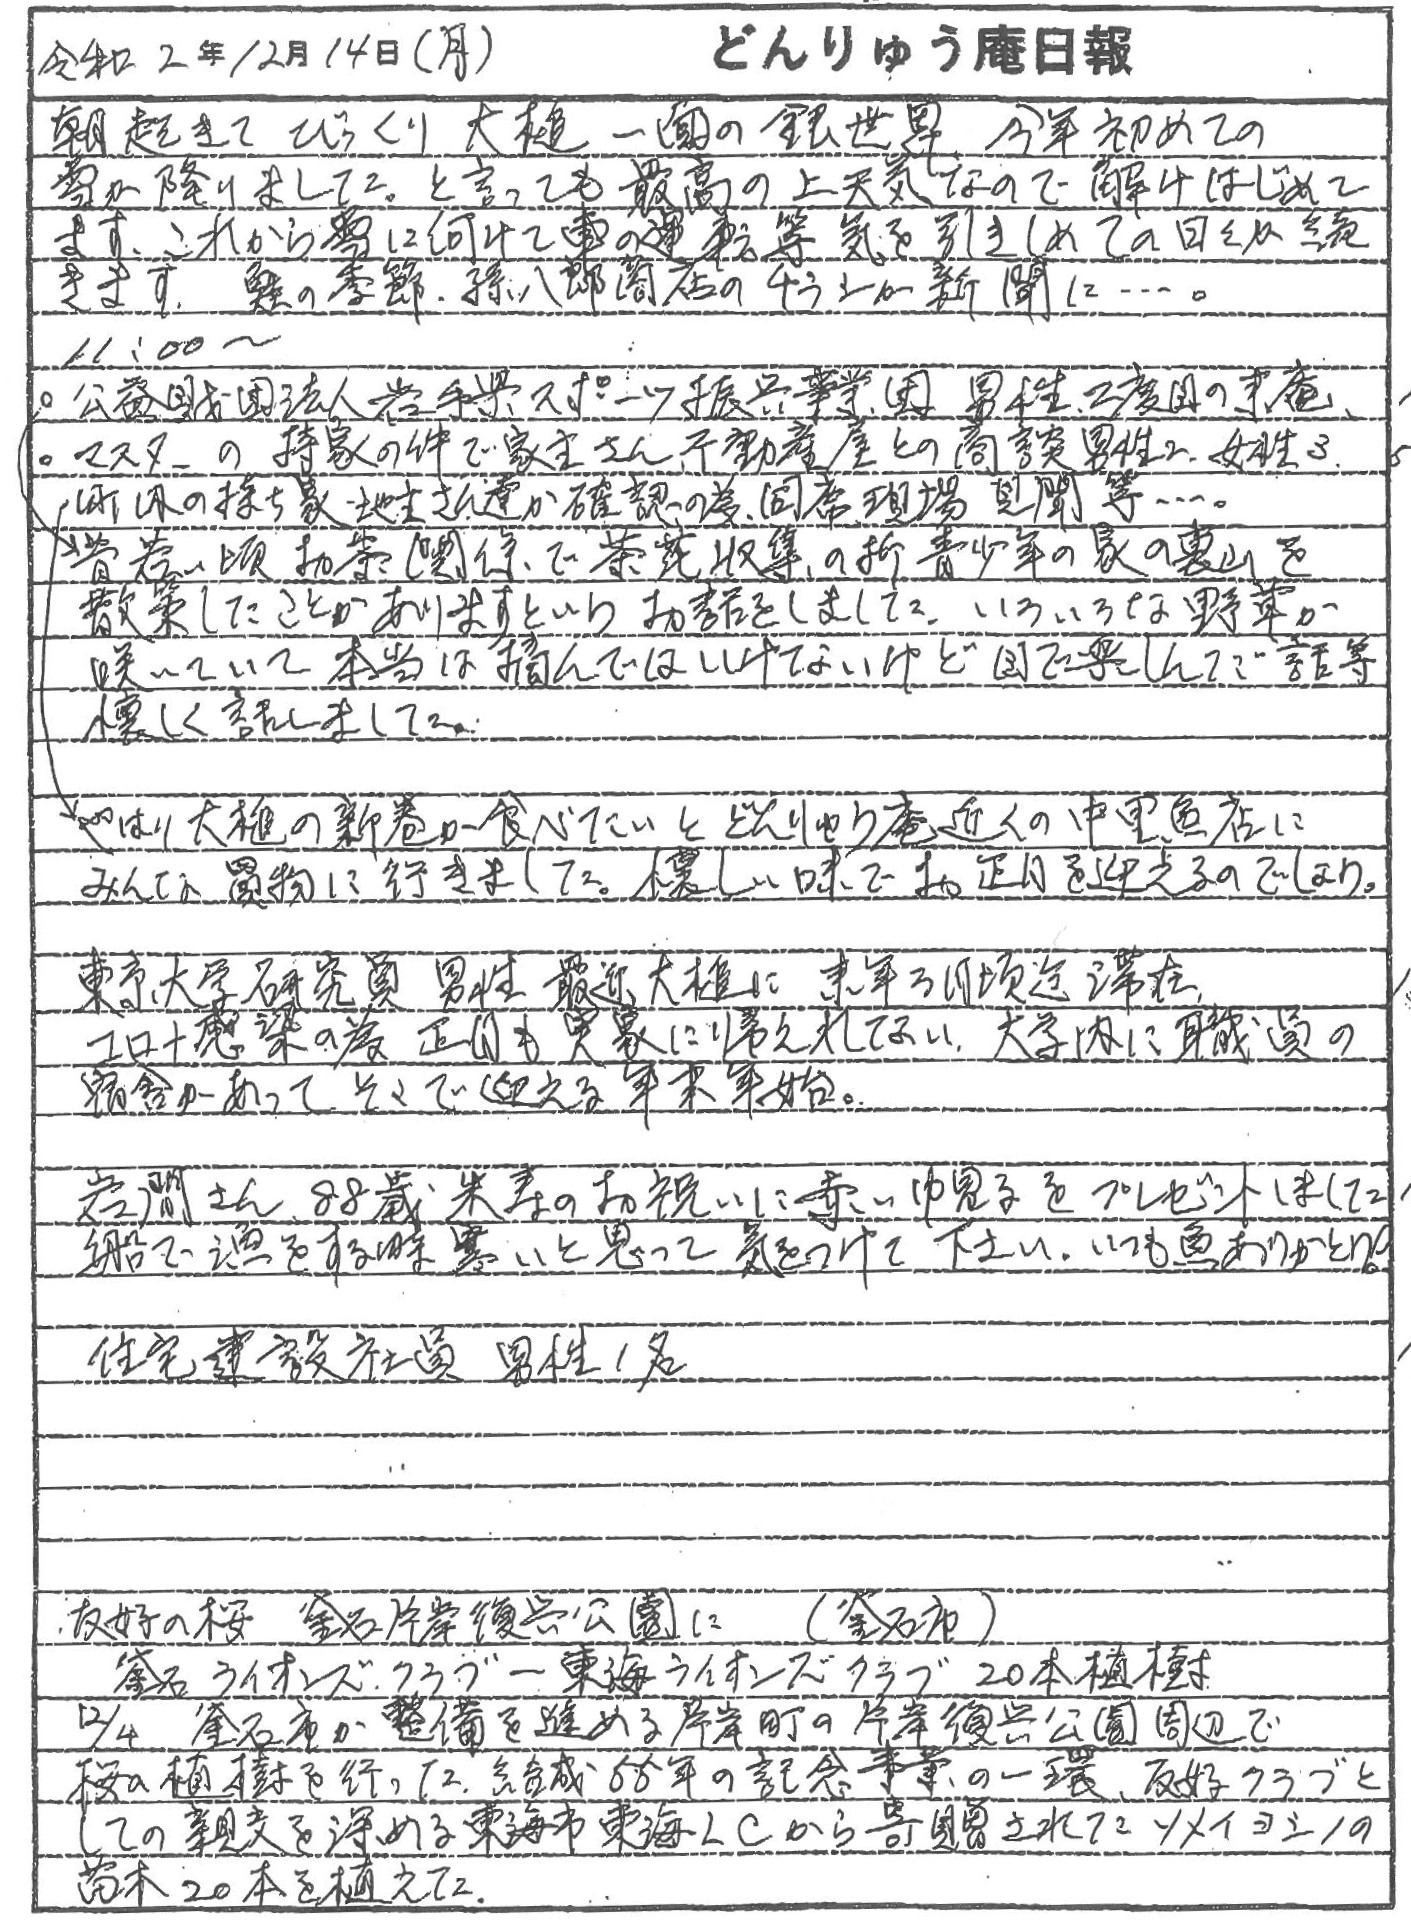 令和 2年12月14日(月) どんりゅう庵日報
朝起きてびっくり 大槌一面の銀世界 今年初めての
雪が降りました。と言っても最高の上天気なので解けはじめて
ます。これから雪に向けて車の運転等気を引きしめての日々が続
きます。 鮭の季節、孫八郎商店のチラシが新聞に…。
11:00〜
○ 公益財団法人岩手県スポーツ振興事業団 男性、2度目の来庵、
○ マスターの持家の件で家主さん、不動産屋との商談男性2、女性3、
町内の持ち家・地主さん達が確認の為、同席、現場見聞等…。
昔若い頃お茶関係で茶花収集の折青少年の家の裏山を
散策したことがありますというお話をしました。いろいろな野草が
咲いていて本当は摘んではいけないけど目で楽しんでご話等
懐しく話しました。
やはり大槌の新巻が食べたいとどんりゅう庵近くの中里魚店に
みんな買物に行きました。懐しい味でお正月を迎えるのでしょう。
東京大学研究員 男性 最近大槌に 来年3月頃迄滞在、
コロナ感染の為 正月も実家に帰えれない。大学内に職員の
宿舎があって、そこで迎える年末年始。
岩間さん、88歳 米寿のお祝いに赤い をプレゼントしました
船で漁をする時寒いと思って気をつけて下さい。いつも魚ありがとう。
住宅建設社員 男性1名
友好の桜 釜石片岸復興公園に (釜石市)
釜石ライオンズクラブ―東海ライオンズクラブ 20本植樹
12/4 釜石市が整備を進める片岸町の片岸復興公園周辺で
桜の植樹を行った。結成 年の記念事業の一環、友好クラブと
しての親交を深める東海市東海LCから寄贈されたソメイヨシノの
苗木20本を植えた。